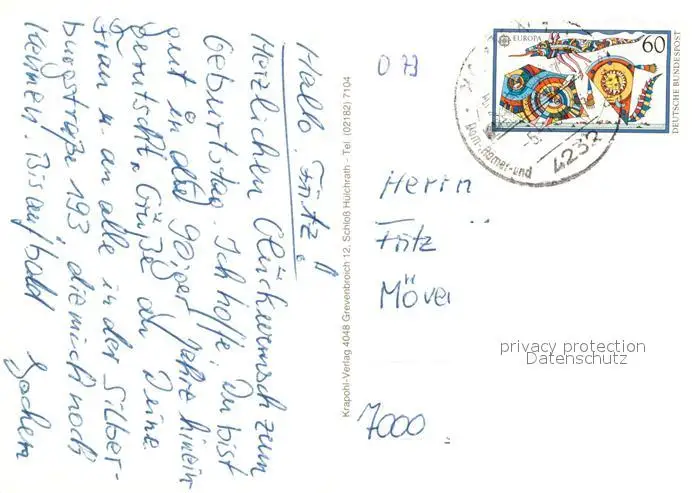 Hallo Fritz!
Herzlichen Glückwunsch zum
Geburtstag. Ich hoffe Du bist
gut in die 90iger Jahre hinein
gerutscht. Grüße an Deine
Frau u. an alle in der Silber-
burgstraße 193 die mich noch
kennen. Bis auf bald
Jochem
Krapohl-Verlag 4048 Grevenbroich 12, Schloß Hülchrath – Tel. (02182) 7104
EUROPA
60
DEUTSCHE BUNDESPOST
Dom-, Römer- und
4232
Herrn
Fritz
privacy protection
Datenschutz
7000